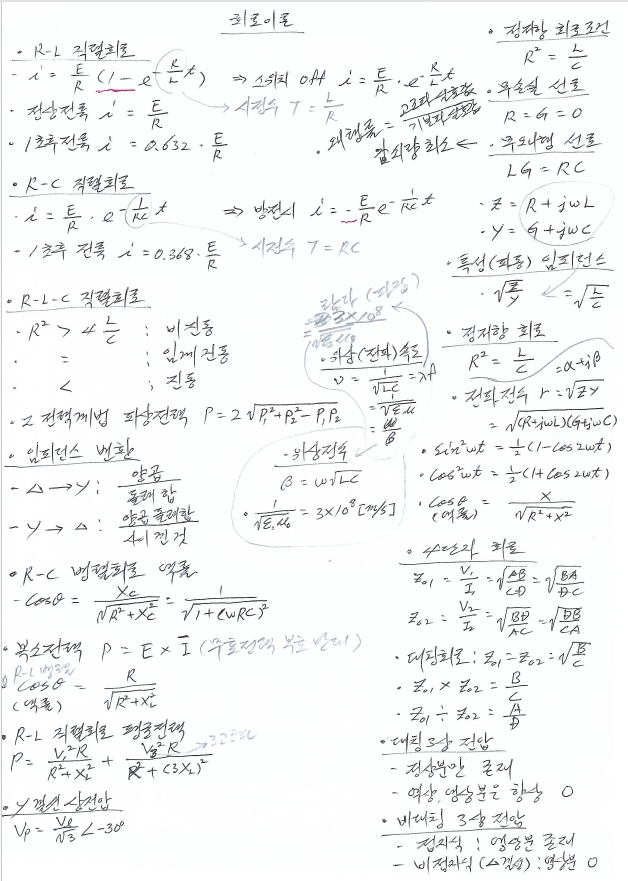 회로이론
• R-L 직렬회로
- i = E/R (1 - e^-(R/L)t) ⇒ 스위치 off i = E/R · e^-(R/L)t
→ 시정수 T = L/R
• 정상전류 i = E/R
• 1초후전류 i = 0.632 · E/R
• R-C 직렬회로
- i = E/R · e^-(1/RC)t ⇒ 방전시 i = -E/R e^-(1/RC)t
- 1초후 전류 i = 0.368 · E/R → 시정수 T = RC
• R-L-C 직렬회로
· R² > 4 L/C : 비진동
· = : 임계진동
· < : 진동
• 2전력계법 피상전력 P = 2√(P₁² + P₂² - P₁P₂)
• 임피던스 변환
- △ → Y : 양곱/둘레합
- Y → △ : 양곱둘레합/사이낀것
• R-C 병렬회로 역률
- cosθ = Xc/√(R² + Xc²) = 1/√(1 + (ωRC)²)
• 복소전력 P = E × Ī (무효전력 부호 반대)
• R-L 병렬
cosθ (역률) = R/√(R² + X_L²)
• R-L 직렬회로 평균전력
P = V₁²R/(R² + X_L²) + V₃²R/(R² + (3X_L)²) → 3고조파
• Y결선 상전압
Vp = Vℓ/√3 ∠-30°
• 왜형률 = 고조파 실효값/기본파 실효값
람다 (파장)
= 3×10⁸/√εμ
• 위상(전파)속도
υ = 1/√LC = λf
= 1/√εμ
= ω/β
- 위상정수
β = ω√LC
• 1/√ε₀μ₀ = 3×10⁸ [m/s]
• 정저항 회로조건
R² = L/C
• 무손실 선로
R = G = 0
감쇠량최소 ← • 무왜형 선로
LG = RC
· Z = R + jωL
· Y = G + jωC
• 특성(파동) 임피던스
· √(Z/Y) = √(L/C)
• 정저항 회로
R² = L/C
• 전파정수 r = √ZY = α + jβ
= √(R+jωL)(G+jωC)
• sin²ωt = ½(1 - cos2ωt)
• cos²ωt = ½(1 + cos2ωt)
• cosθ (역률) = X/√(R² + X²)
• 4단자 회로
Z₀₁ = V₁/I₁ = √(AB/CD) = √(BA/DC)
Z₀₂ = V₂/I₂ = √(BD/AC) = √(DB/CA)
• 대칭회로 : Z₀₁ = Z₀₂ = √(B/C)
• Z₀₁ × Z₀₂ = B/C
• Z₀₁ ÷ Z₀₂ = A/D
• 대칭 3상 전압
- 정상분만 존재
- 역상, 영상분은 항상 0
• 비대칭 3상 전압
- 접지식 : 영상분 존재
- 비접지식 (△결선) : 영상분 0